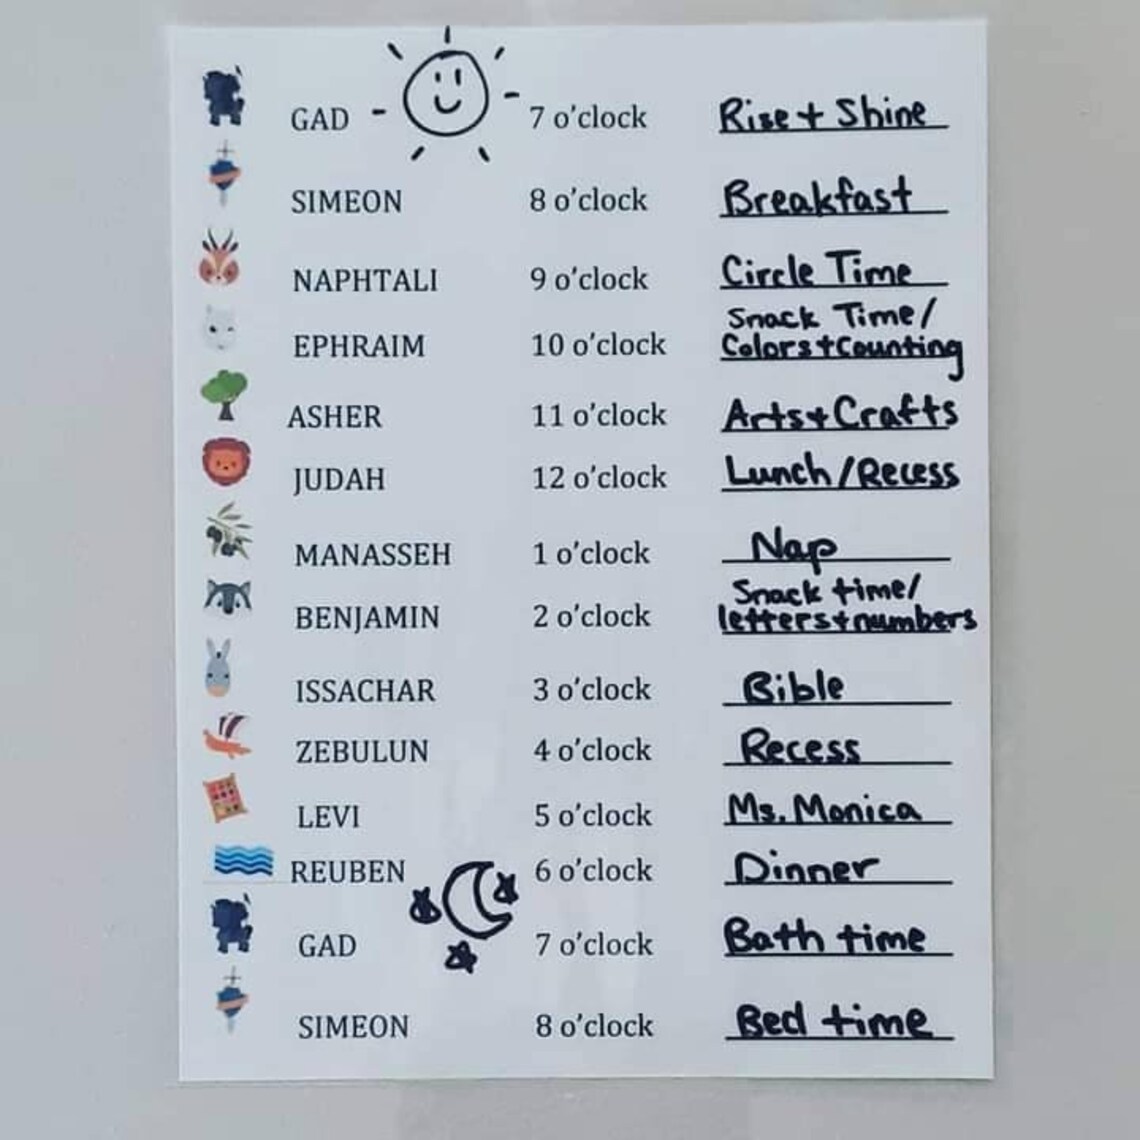 GAD 7 o'clock Rise + Shine
SIMEON 8 o'clock Breakfast
NAPHTALI 9 o'clock Circle Time
Snack Time/
EPHRAIM 10 o'clock Colors + Counting
ASHER 11 o'clock Arts + Crafts
JUDAH 12 o'clock Lunch/Recess
MANASSEH 1 o'clock Nap
Snack time/
BENJAMIN 2 o'clock letters + numbers
ISSACHAR 3 o'clock Bible
ZEBULUN 4 o'clock Recess
LEVI 5 o'clock Ms. Monica
REUBEN 6 o'clock Dinner
GAD 7 o'clock Bath time
SIMEON 8 o'clock Bed time